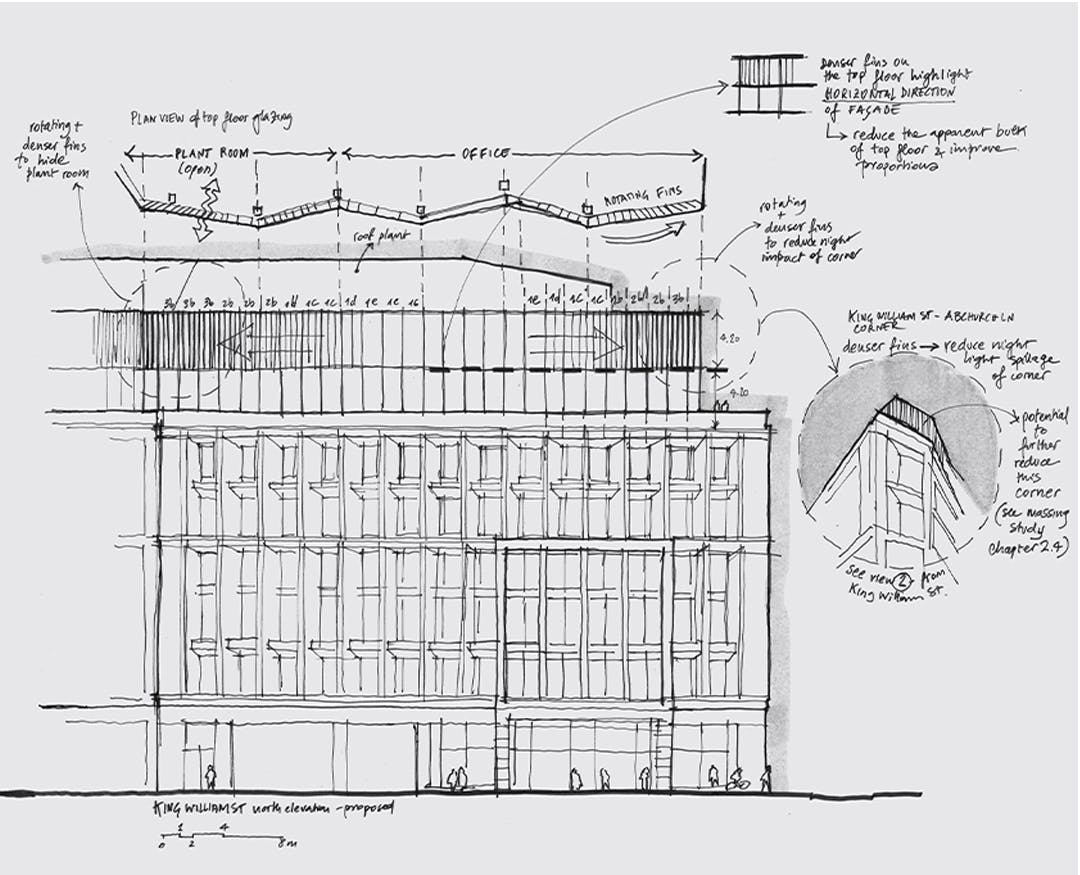 denser fins on
the top floor highlight
HORIZONTAL DIRECTION
of FAÇADE
reduce the apparent bulk
of top floor & improve
proportions
PLAN VIEW of top floor glazing
rotating +
denser fins
to hide
plant room
PLANT ROOM
(open)
OFFICE
ROTATING FINS
roof plant
rotating
+
denser fins
to reduce night
impact of corner
3b 3b 3b 2b 2b 2b 1d 1c 1c 1d 1e 1e
1e 1d 1c 1c 2b 2b 2b 3b
4.20
4.20
KING WILLIAM ST - ABCHURCH LN
CORNER
denser fins → reduce night
light spillage
of corner
potential
to
further
reduce
this
corner
(see massing
study
chapter 2.4)
see view 2 from
King William St.
KING WILLIAM ST north elevation - proposed
0 1 2 4 8m